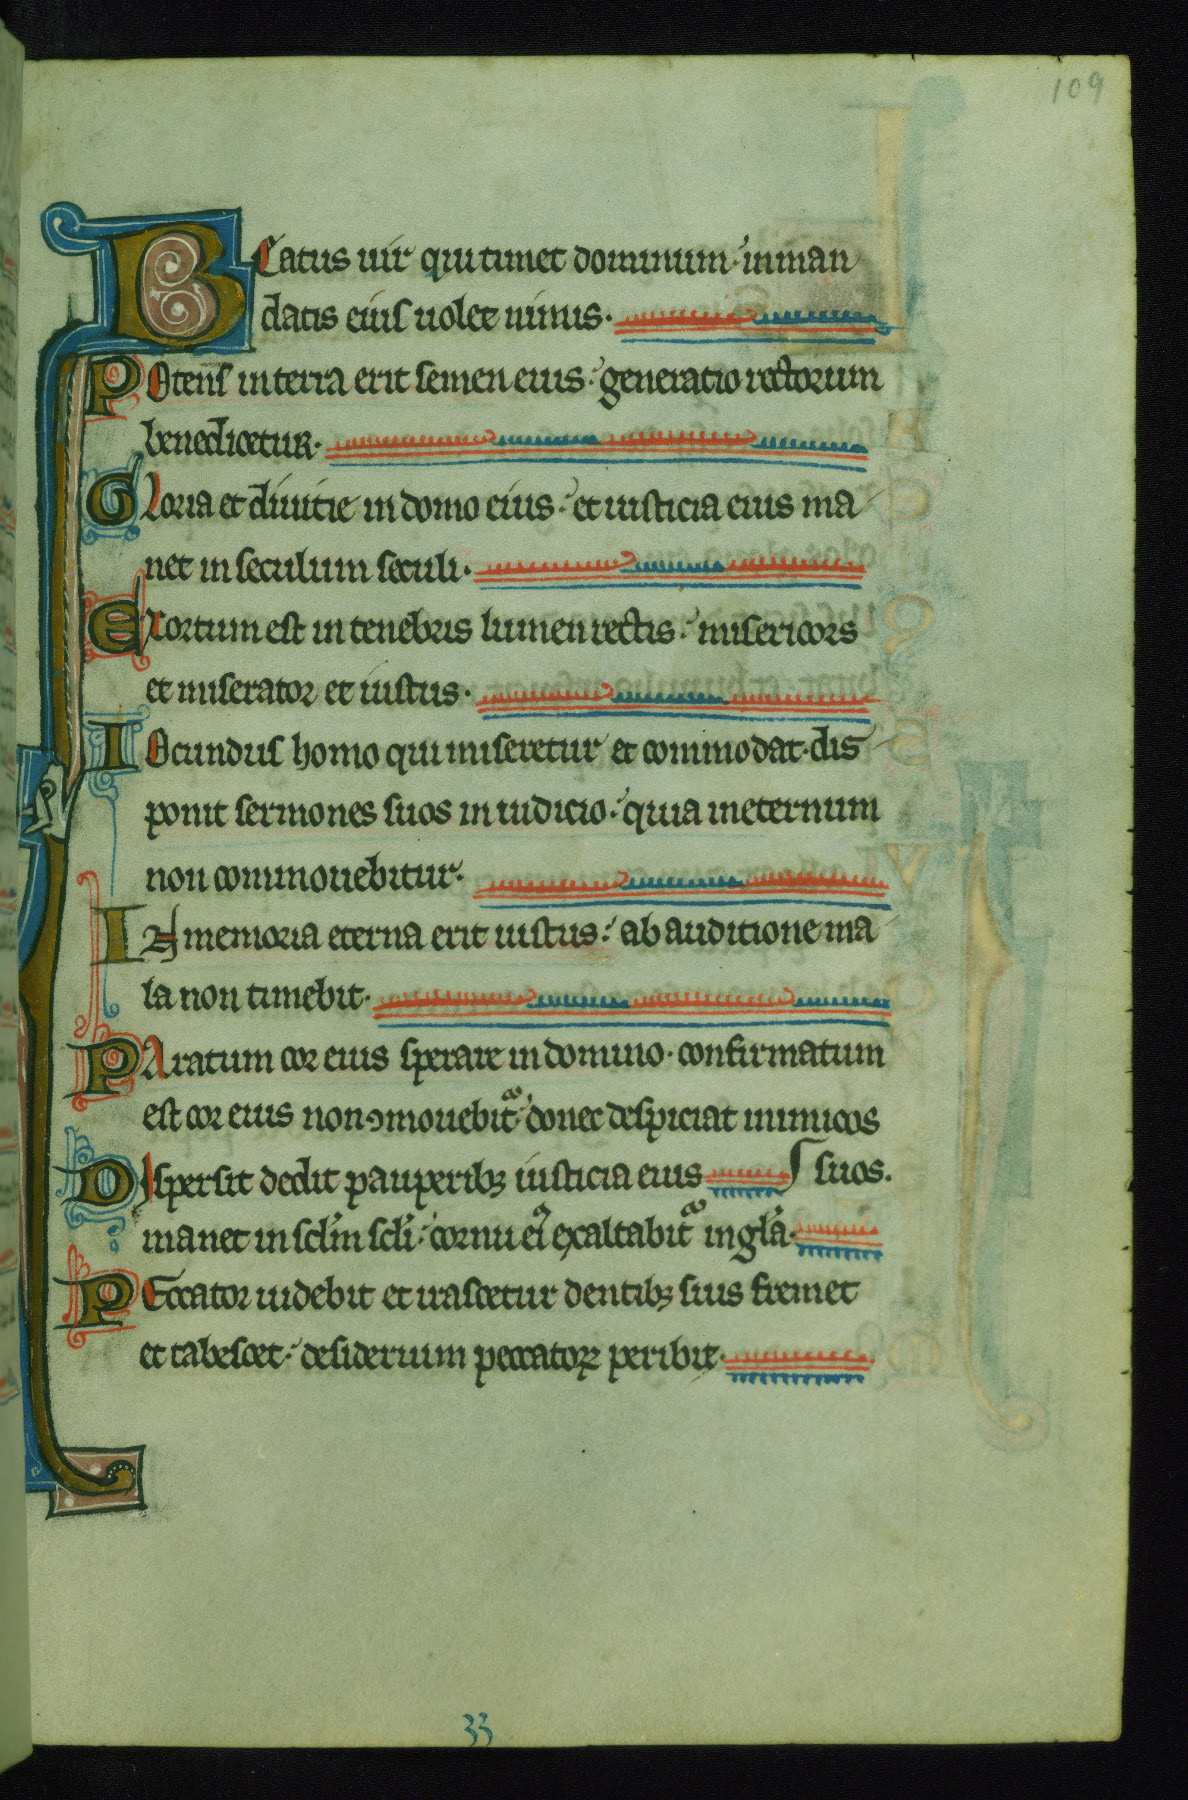 109
BEatus uir qui timet dominum· in man
datis eius uolet nimis·
POtens in terra erit semen eius· generatio rectorum
benedicetur·
GLoria et diuitie in domo eius· et iusticia eius ma
net in seculum seculi·
EXortum est in tenebris lumen rectis· misericors
et miserator et iustus·
IOcundus homo qui miseretur et commodat· dis
ponit sermones suos in iudicio· quia in eternum
non commouebitur·
IN memoria eterna erit iustus· ab auditione ma
la non timebit·
PAratum cor eius sperare in domino· confirmatum
est cor eius non ꝯmouebit᷑· donec despiciat inimicos
DIspersit dedit pauperibꝫ iusticia eius suos.
manet in sclm̄ scli̅· cornu ei᷑ exaltabit᷑ in gl̅a·
PEccator uidebit et irascetur dentibꝫ suis fremet
et tabescet· desiderium peccatoꝝ peribit·
33